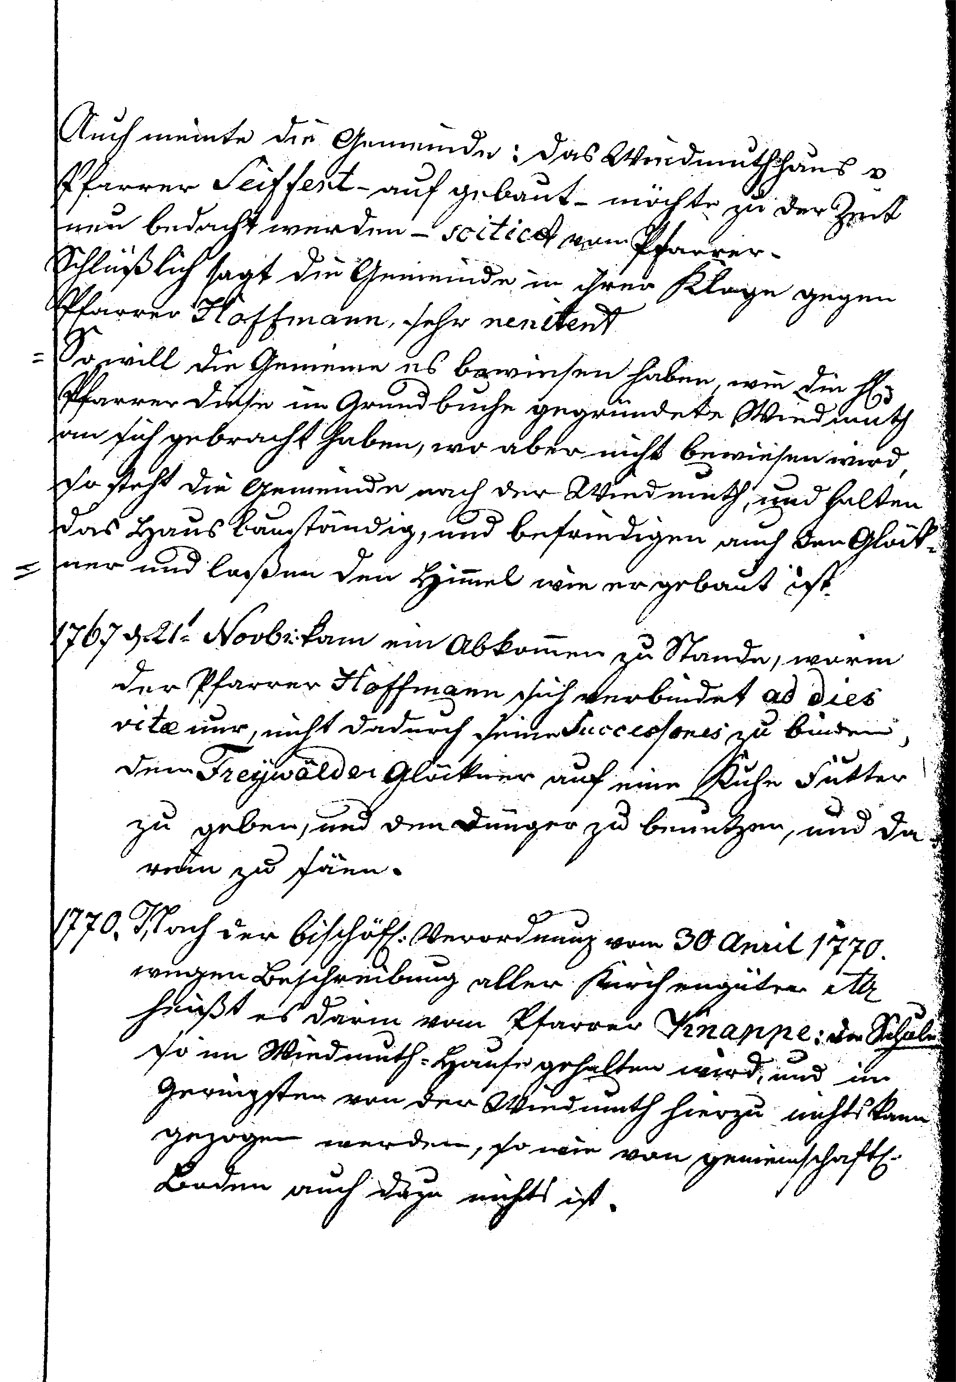 Auch meinte die Gemeinde: das Wiedmuthshaus v
Pfarrer Seiffert - auf gebaut - möchte zu der Zeit
neu bedacht werden - scilicet vom Pfarrer.
Schlüßlich sagt die Gemeinde in ihrer Klage gegen
Pfarrer Hoffmann, sehr renitent
= So will die Gemeine es bewiesen haben, wie die H
Pfarrer diese im Grundbuche gegründete Wiedmuth
an sich gebracht haben, wo aber nicht bewiesen wird,
so steht die Gemeinde nach der Wiedmuth, und halten
das Haus bauständig, und befriedigen auch den Glöck-
= ner und laßen den Himel wie er gebaut ist
1767 d. 21t Novbr: kam ein Abkomen zu Stande, worin
der Pfarrer Hoffmann sich verbindet ad dies
vitae nur, nicht dadurch seine Successores zu binden,
dem Freywälder Glöckner auf eine Kuhe Futter
zu geben, und den Dünger zu benutzen, und da
rein zu säen.
1770. Nach der bischöfl: Verordnung vom 30 April 1770.
wegen Beschreibung aller Kirchengüter etc
heißt es darin vom Pfarrer Knappe: die Schule
so im Wiedmuth-Hause gehalten wird, und im
Geringsten von der Wiedmuth hierzu nichts kann
gezogen werden, so wie von gemeinschaftl:
Boden auch dazu nichts ist.